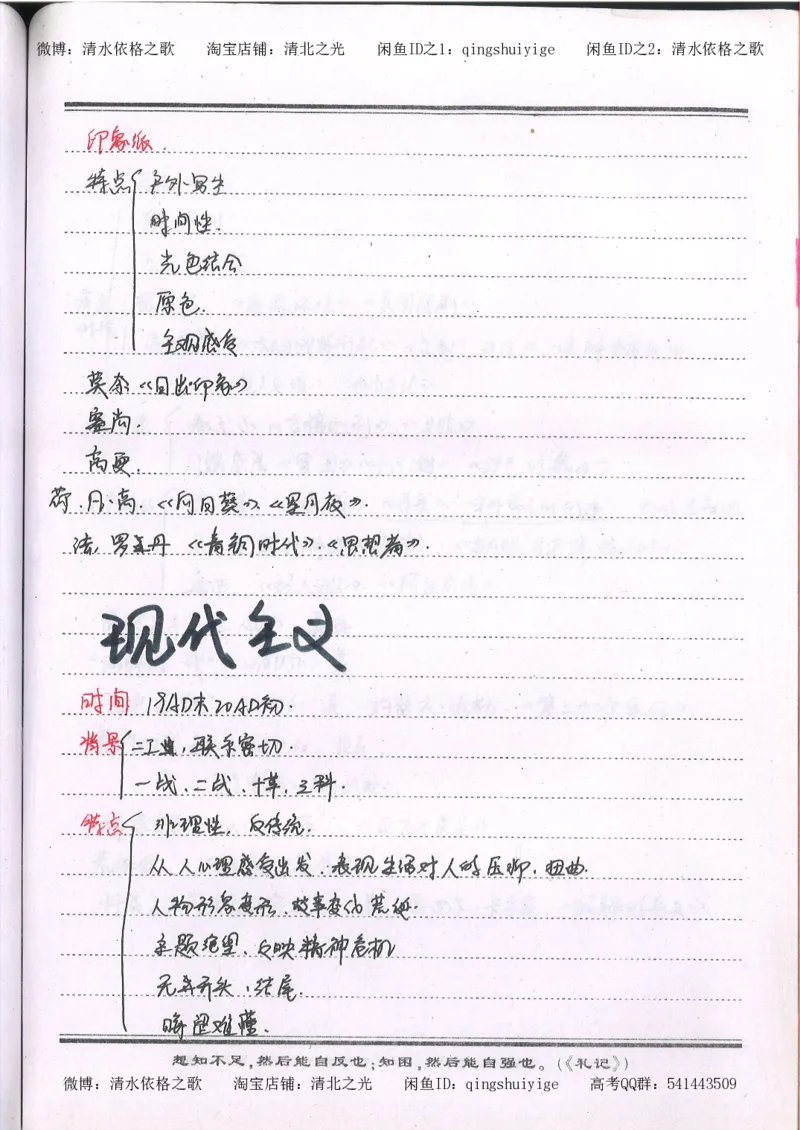 微博：清水依格之歌 淘宝店铺：清北之光 闲鱼ID之1：qingshuiyige 闲鱼ID之2：清水依格之歌
印象派.
特点 户外写生
时间性.
光色结合
原色.
主观感受
莫奈《日出印象》
塞尚.
高更.
荷.凡·高.《向日葵》、《星月夜》.
法. 罗丹 《青铜时代》.《思想者》.
现代主义
时间 19AD末20AD初.
背景 二工业，联系密切.
一战、二战、十革，三科.
特点 非理性，反传统.
从人心理感受出发，表现生活对人的压抑，扭曲.
人物形象变形，故事变化荒诞.
主题绝望、反映精神危机
无乎开头、结尾.
晦涩难懂.
想知不足，然后能自反也；知困，然后能自强也。（《礼记》）
微博：清水依格之歌 淘宝店铺：清北之光 闲鱼ID：qingshuiyige 高考QQ群：541443509